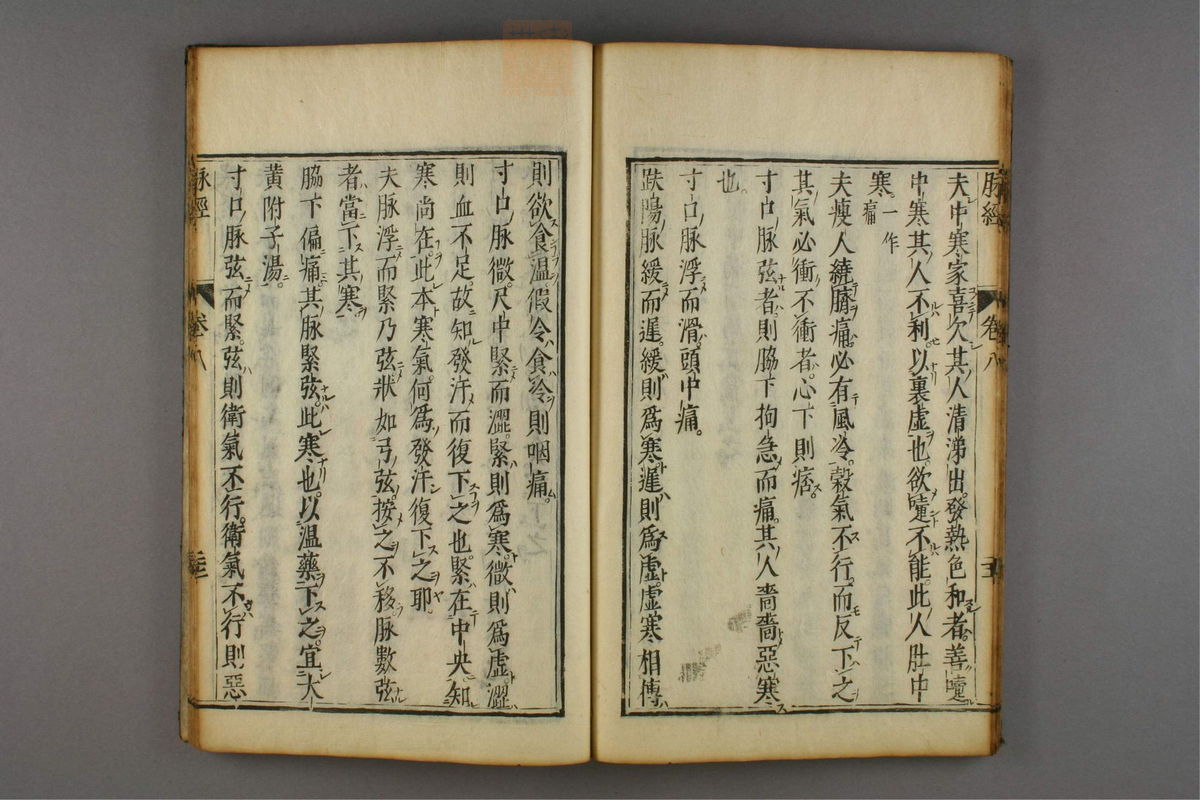 脉經 卷八
夫中寒家喜欠其人清涕出發熱色和者善嚏
中寒其人不利以裏虛也欲嚏不能此人肚中
寒一作痛
夫瘦人繞臍痛必有風冷穀氣不行而反下之
其氣必衝不衝者心下則痞
寸口脉弦者則脇下拘急而痛其人嗇嗇惡寒
也
寸口脉浮而滑頭中痛
趺陽脉緩而遲緩則爲寒遲則爲虛虛寒相傳
則欲食温假令食冷則咽痛
寸口脉微尺中緊而澀緊則爲寒微則爲虛澀
則血不足故知發汗而復下之也緊在中央知
寒尚在此本寒氣何爲發汗復下之耶
夫脉浮而緊乃弦狀如弓弦按之不移脉數弦
者當下其寒
脇下偏痛其脉緊弦此寒也以温藥下之宜大
黄附子湯
寸口脉弦而緊弦則衛氣不行衛氣不行則惡
脉經 卷八